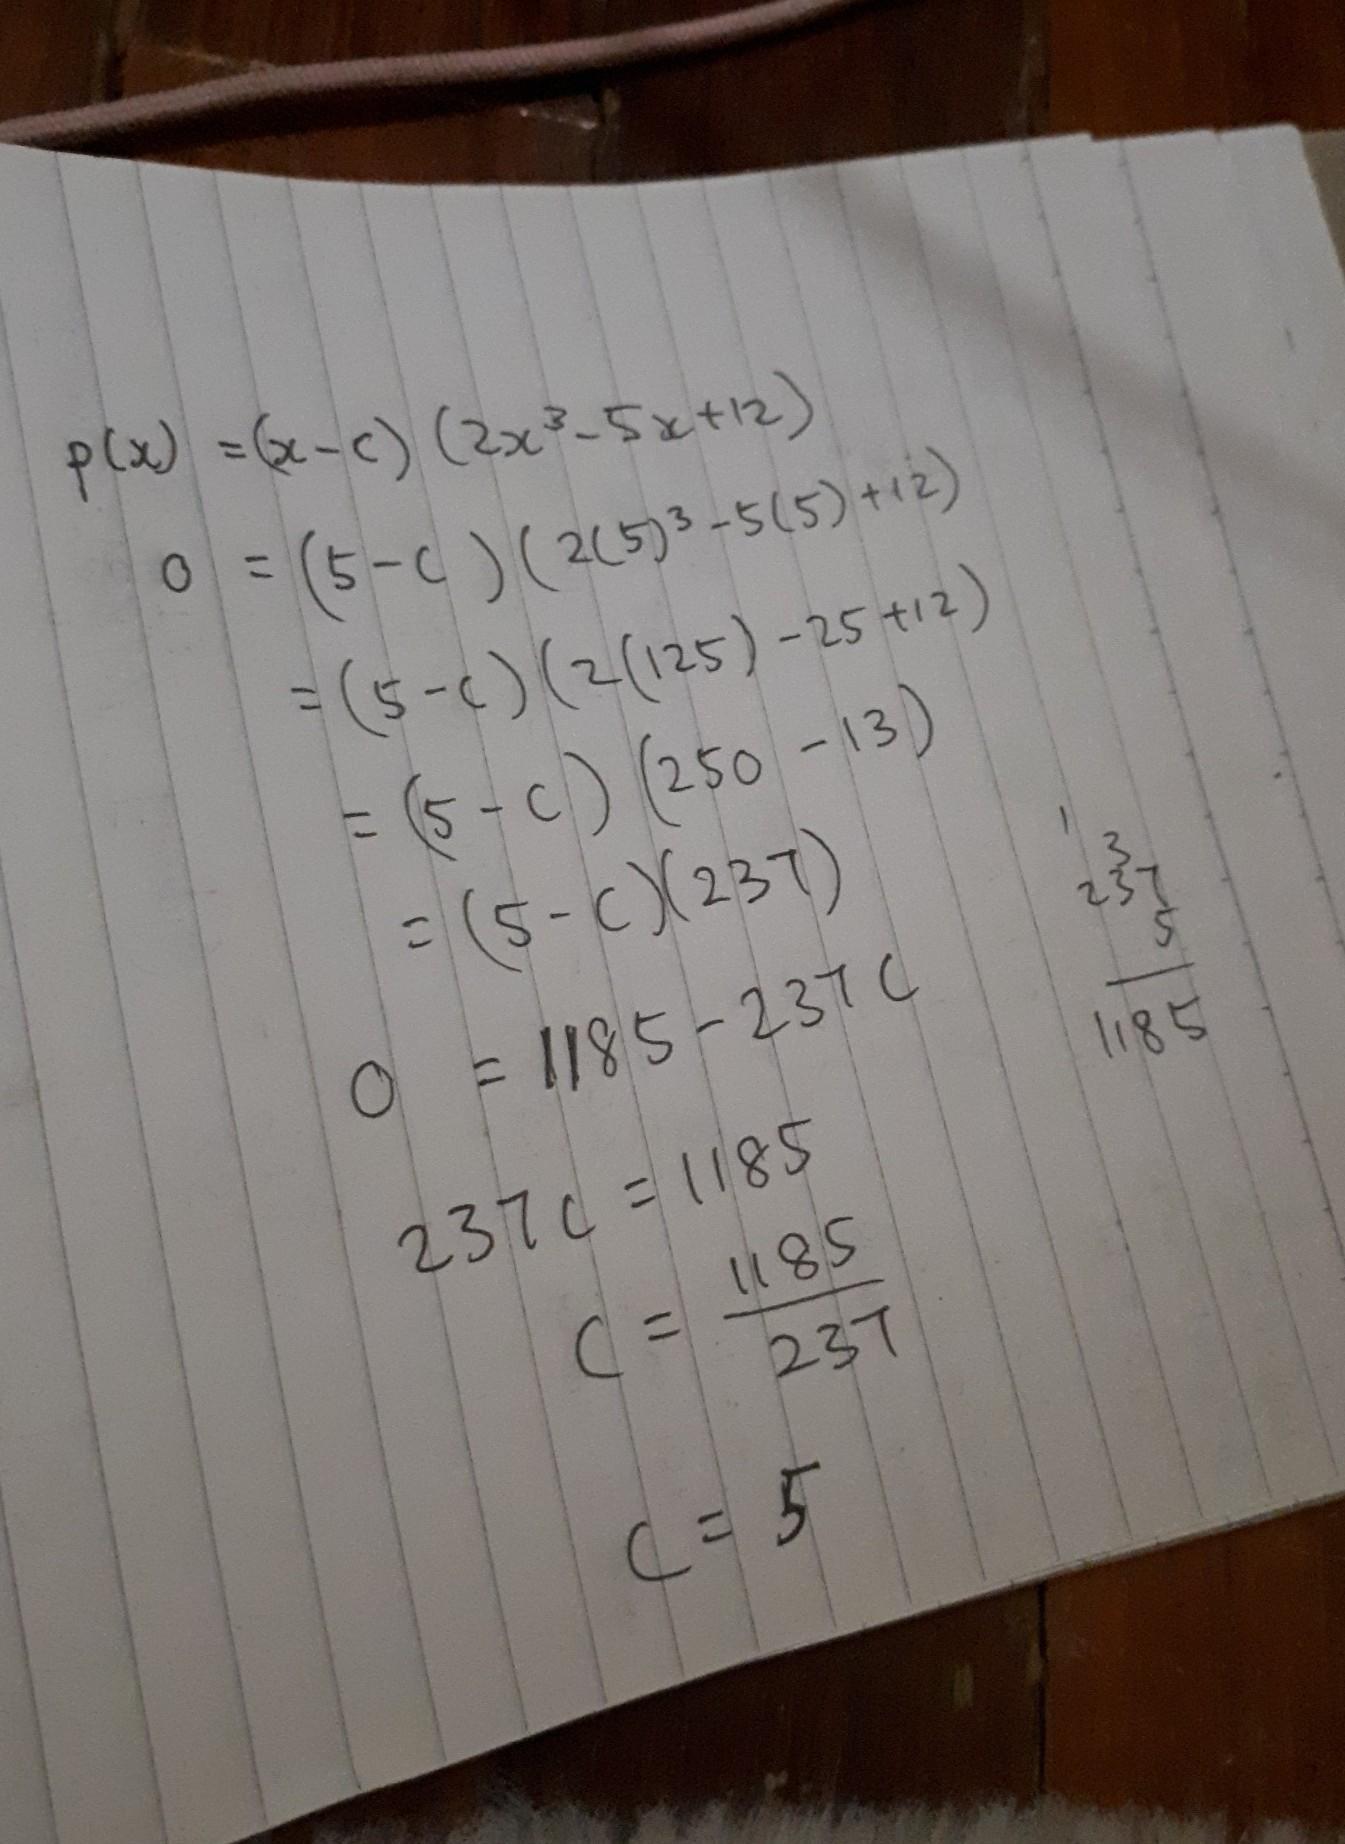 p(x) = (x-c) (2x³-5x+12)
0 = (5-c) (2(5)³-5(5)+12)
= (5-c) (2(125) -25+12)
= (5-c) (250 -13)
= (5-c)(237)
0 = 1185-237c
237c = 1185
c = 1185/237
c = 5
1 3
237
5
1185